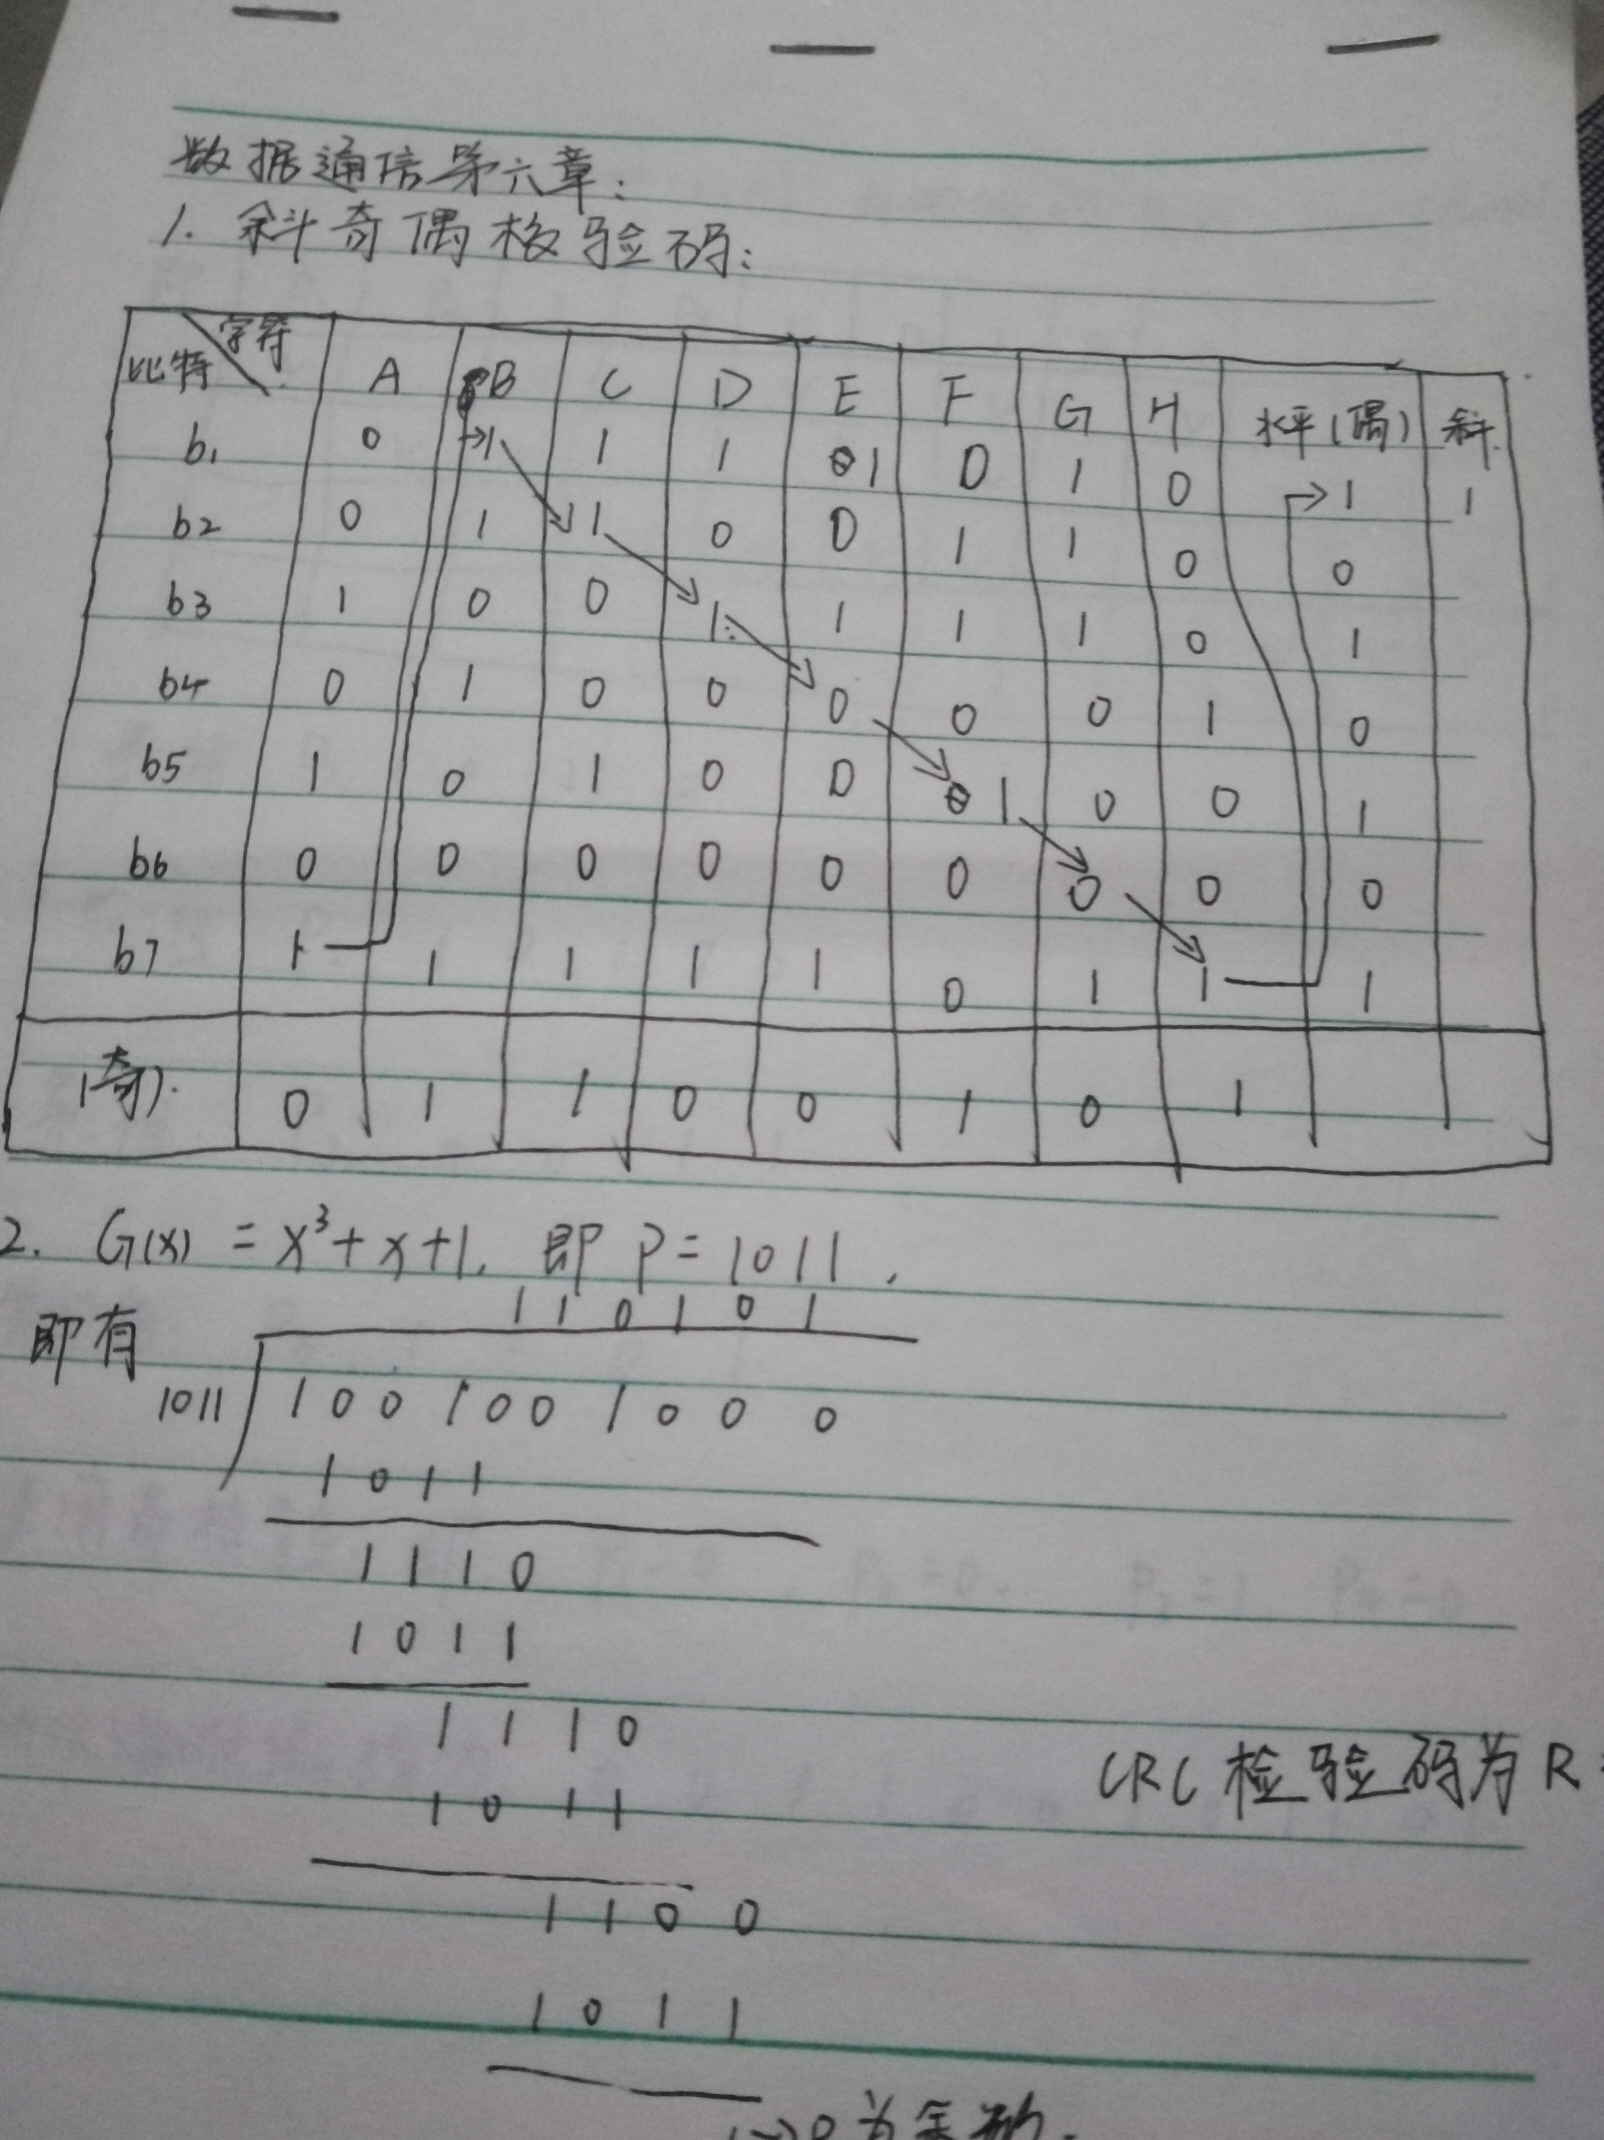 数据通信第六章:
1. 斜奇偶校验码:
比特 字符 A B C D E F G H 水平(偶) 斜
b1 0 1 1 1 1 0 1 0 1 1
b2 0 1 1 0 0 1 1 0 0
b3 1 0 0 1 1 1 1 0 1
b4 0 1 0 0 0 0 0 1 0
b5 1 0 1 0 0 1 0 0 1
b6 0 0 0 0 0 0 0 0 0
b7 1 1 1 1 1 0 1 1 1
(奇). 0 1 1 0 0 1 0 1
2. G(x) = x³+x+1, 即 P=1011,
1 1 0 1 0 1
即有
1011 1 0 0 1 0 0 1 0 0 0
1 0 1 1
1 1 1 0
1 0 1 1
1 1 1 0
CRC检验码为R
1 0 1 1
1 1 0 0
1 0 1 1
为余数.